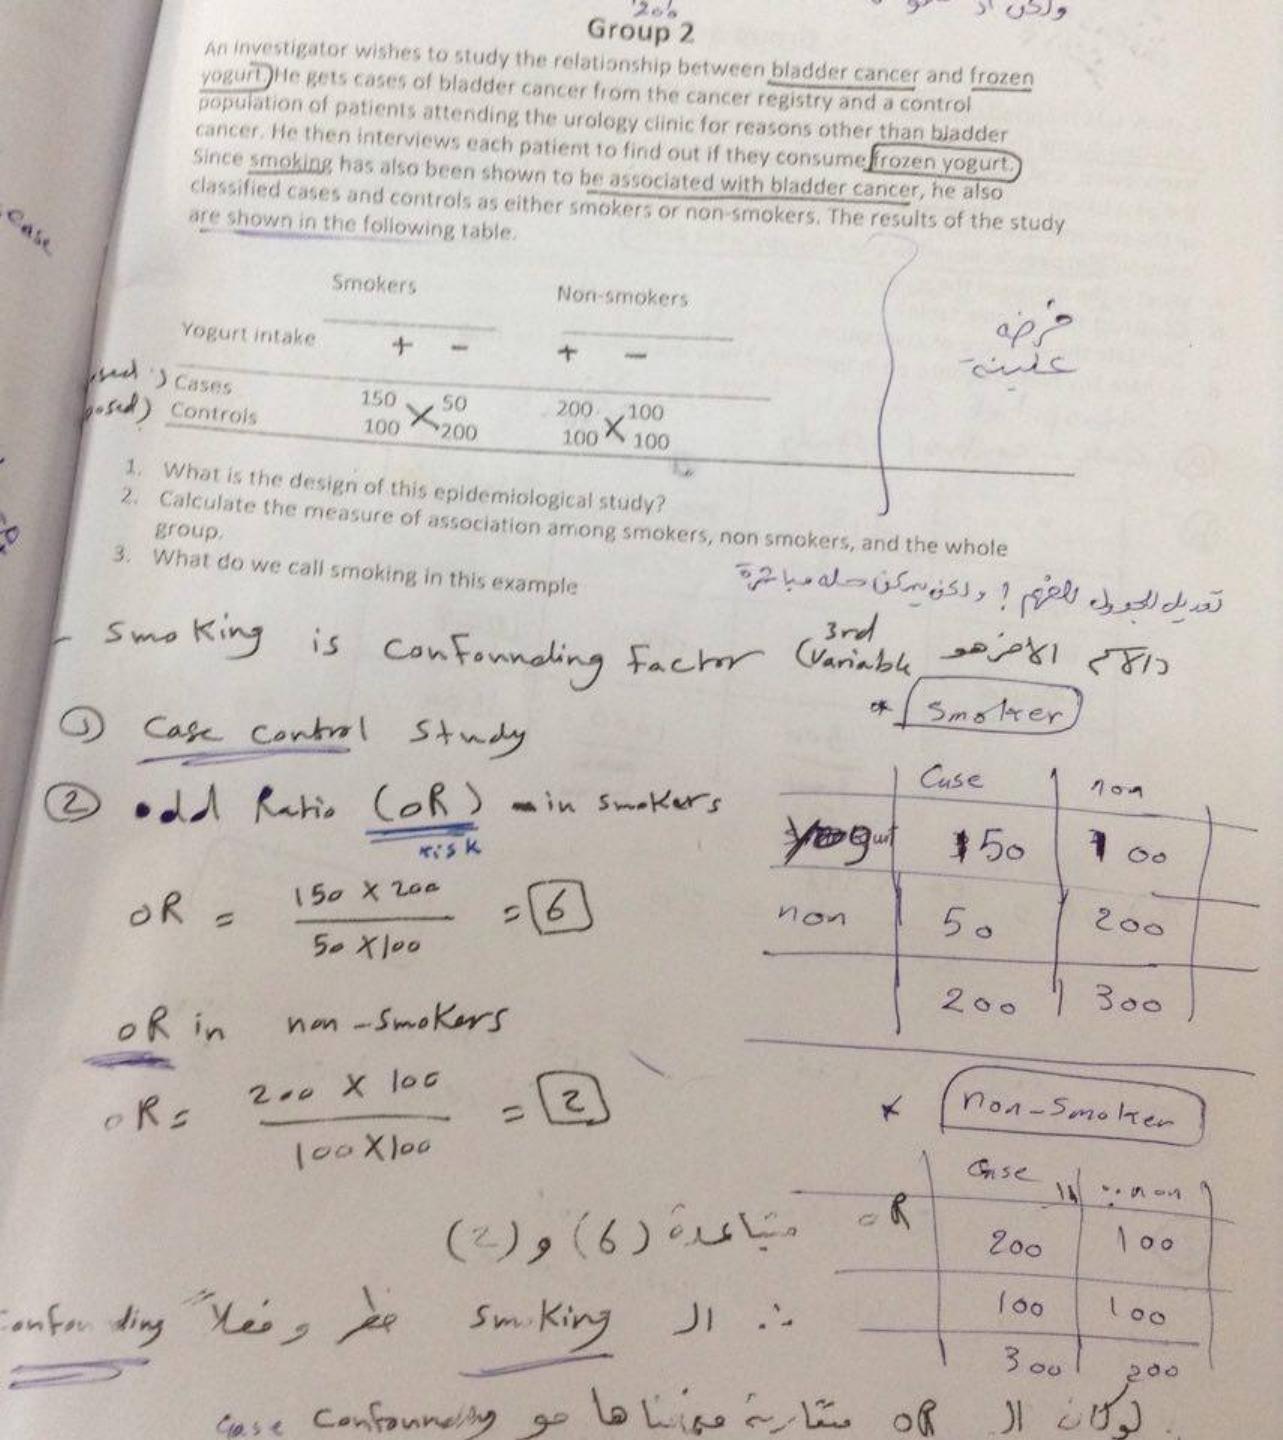 ولكن
Group 2
An investigator wishes to study the relationship between bladder cancer and frozen
yogurt. He gets cases of bladder cancer from the cancer registry and a control
population of patients attending the urology clinic for reasons other than bladder
cancer. He then interviews each patient to find out if they consume frozen yogurt.
Since smoking has also been shown to be associated with bladder cancer, he also
classified cases and controls as either smokers or non-smokers. The results of the study
are shown in the following table.
case
Smokers Non-smokers
Yogurt intake + - + -
Cases 150 50 200 100
posed) Controls 100 200 100 100
1. What is the design of this epidemiological study?
2. Calculate the measure of association among smokers, non smokers, and the whole
group.
3. What do we call smoking in this example
تعديل الجدول للفهم ! ولكن يمكن حله مباشرة
- Smoking is confounding factor (3rd Variable
* Smoker
① Case control study
Case non
② odd Ratio (OR) - in smokers
risk
Yogurt 150 100
OR = 150 X 200 / 50 X 100 = 6
non 50 200
200 300
OR in non-smokers
OR = 200 X 100 / 100 X 100 = 2
* non-smoker
Case non
OR متباعدة (6) و (2)
200 100
100 100
300 200
∴ ال smoking خطر وفعلاً confounding
لو كان ال OR متقاربة هو confounding case